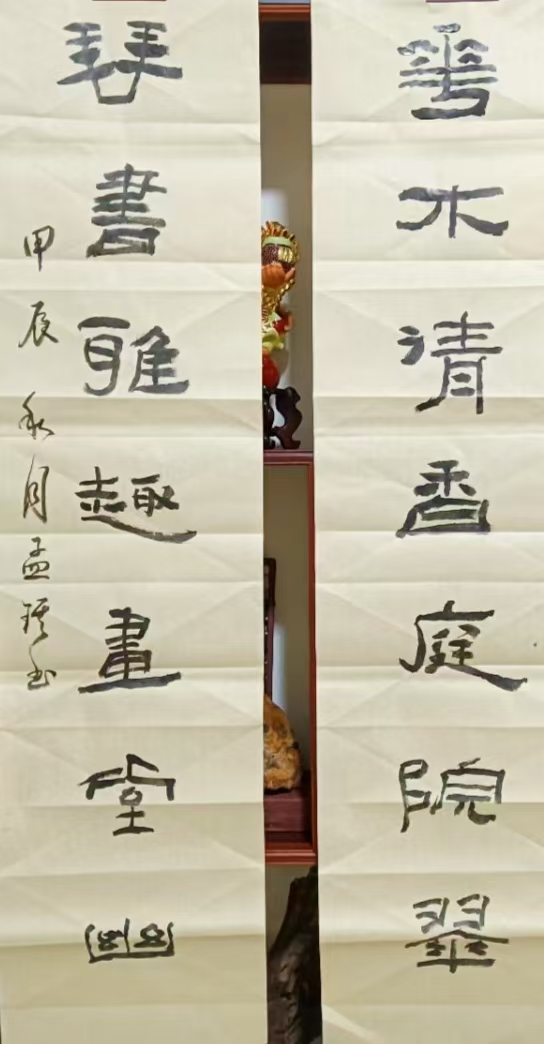 華木清香庭院翠
琴書雅趣畫堂幽
甲辰秋月孟瑾书